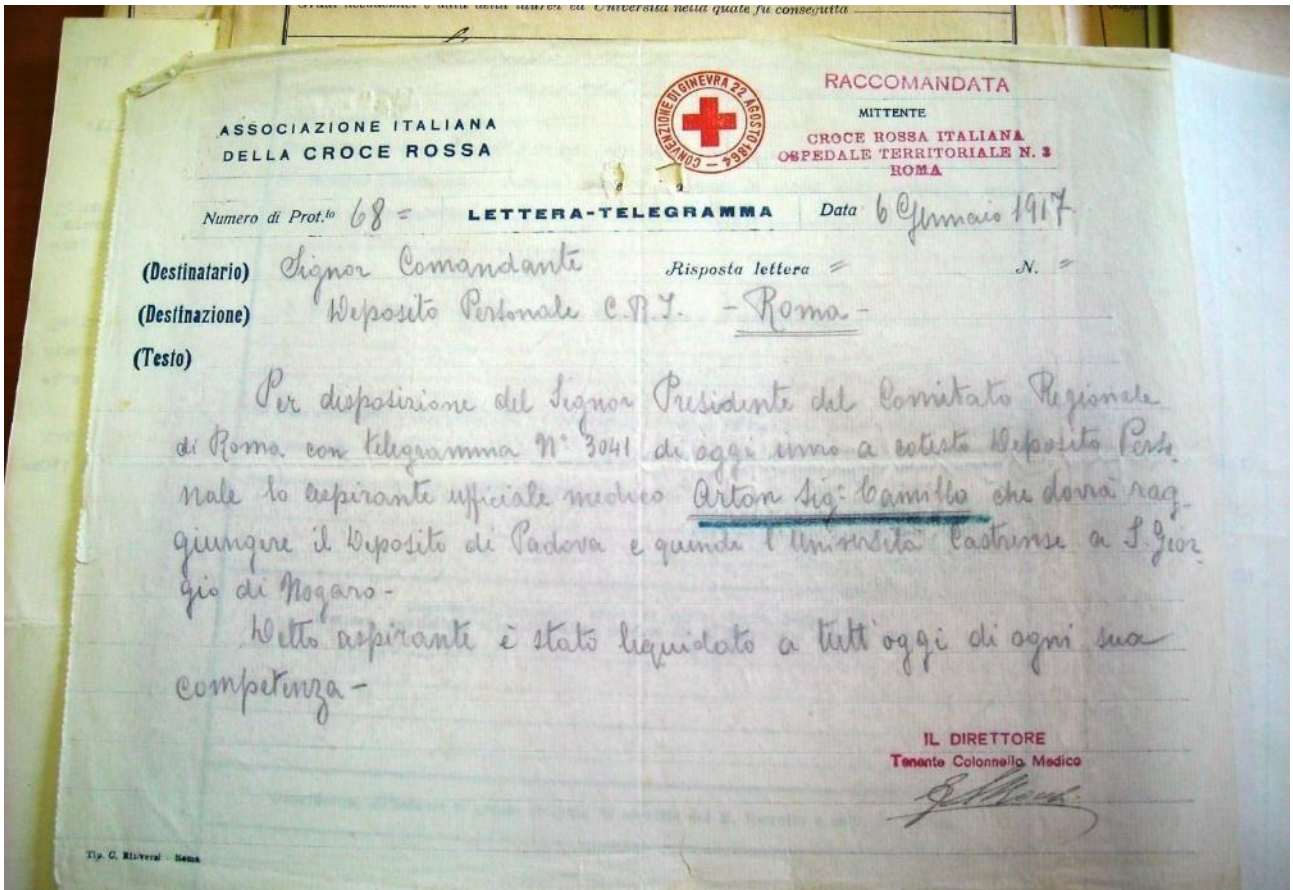 Gradi accademici e data della laurea ed Università nella quale fu conseguita
ASSOCIAZIONE ITALIANA
DELLA CROCE ROSSA
CONVENZIONE DI GINEVRA 22 AGOSTO 1864
RACCOMANDATA
MITTENTE
CROCE ROSSA ITALIANA
OSPEDALE TERRITORIALE N. 3
ROMA
Numero di Prot.lo 68 = LETTERA-TELEGRAMMA Data 6 Gennaio 1917
(Destinatario) Signor Comandante Risposta lettera = N. =
(Destinazione) Deposito Personale C.R.I. - Roma -
(Testo)
Per disposizione del Signor Presidente del Comitato Regionale
di Roma con telegramma N° 3041 di oggi invio a cotesto Deposito Perso
nale lo aspirante ufficiale medico Arton Sig. Camillo che dovrà rag-
giungere il Deposito di Padova e quindi l'Università Castrense a S. Gior
gio di Nogaro -
Detto aspirante è stato liquidato a tutt'oggi di ogni sua
competenza -
IL DIRETTORE
Tenente Colonnello Medico
Tip. C. - Roma